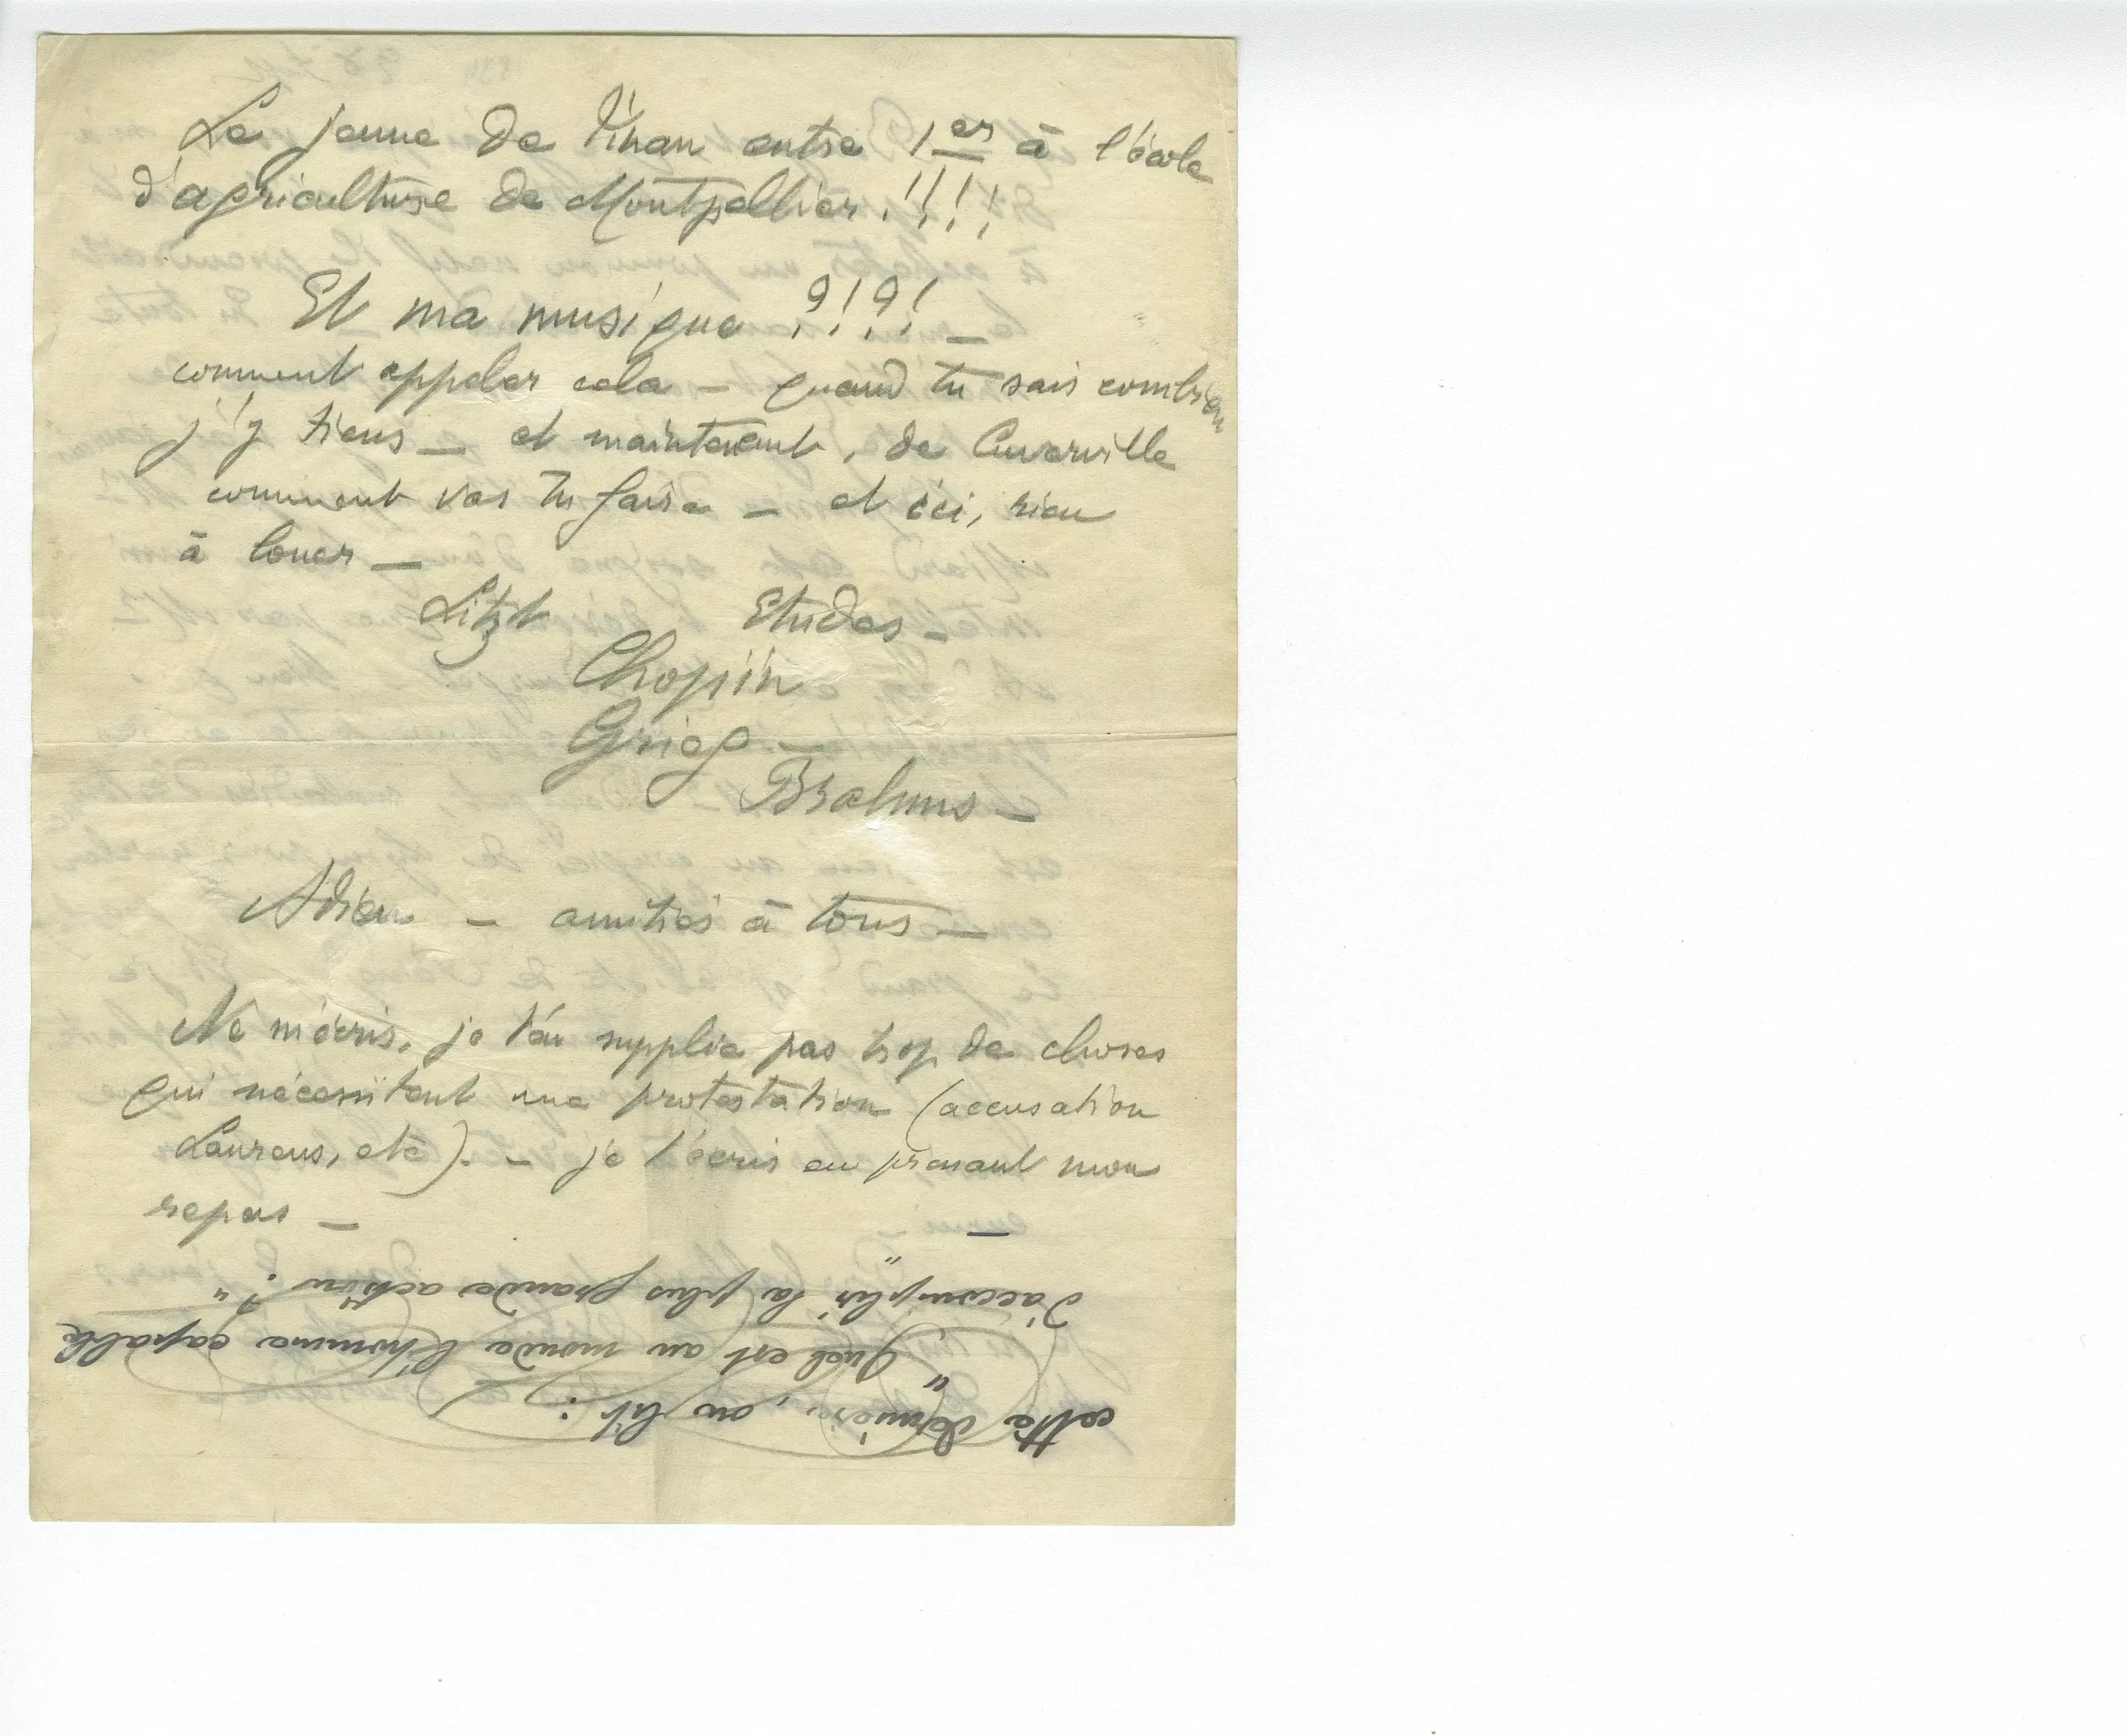 Le jeune de Tinan entre 1er à l'école
d'agriculture de Montpellier !!!!
Et ma musique ?!?! —
comment appeler cela — quand tu sais combien
j'y tiens — et maintenant, de Cuverville
comment vas tu faire — et ici, rien
à louer —
Litzt Etudes —
Chopin
Grieg —
Brahms —
Adieu — amitiés à tous —
Ne m'écris, je t'en supplie pas trop de choses
qui nécessitent une protestation (accusation
Laurens, etc). — je t'écris en prenant mon
repas —
cette dernière, on lit :
"Quel est au monde l'homme capable
d'accomplir la plus grande action ?"